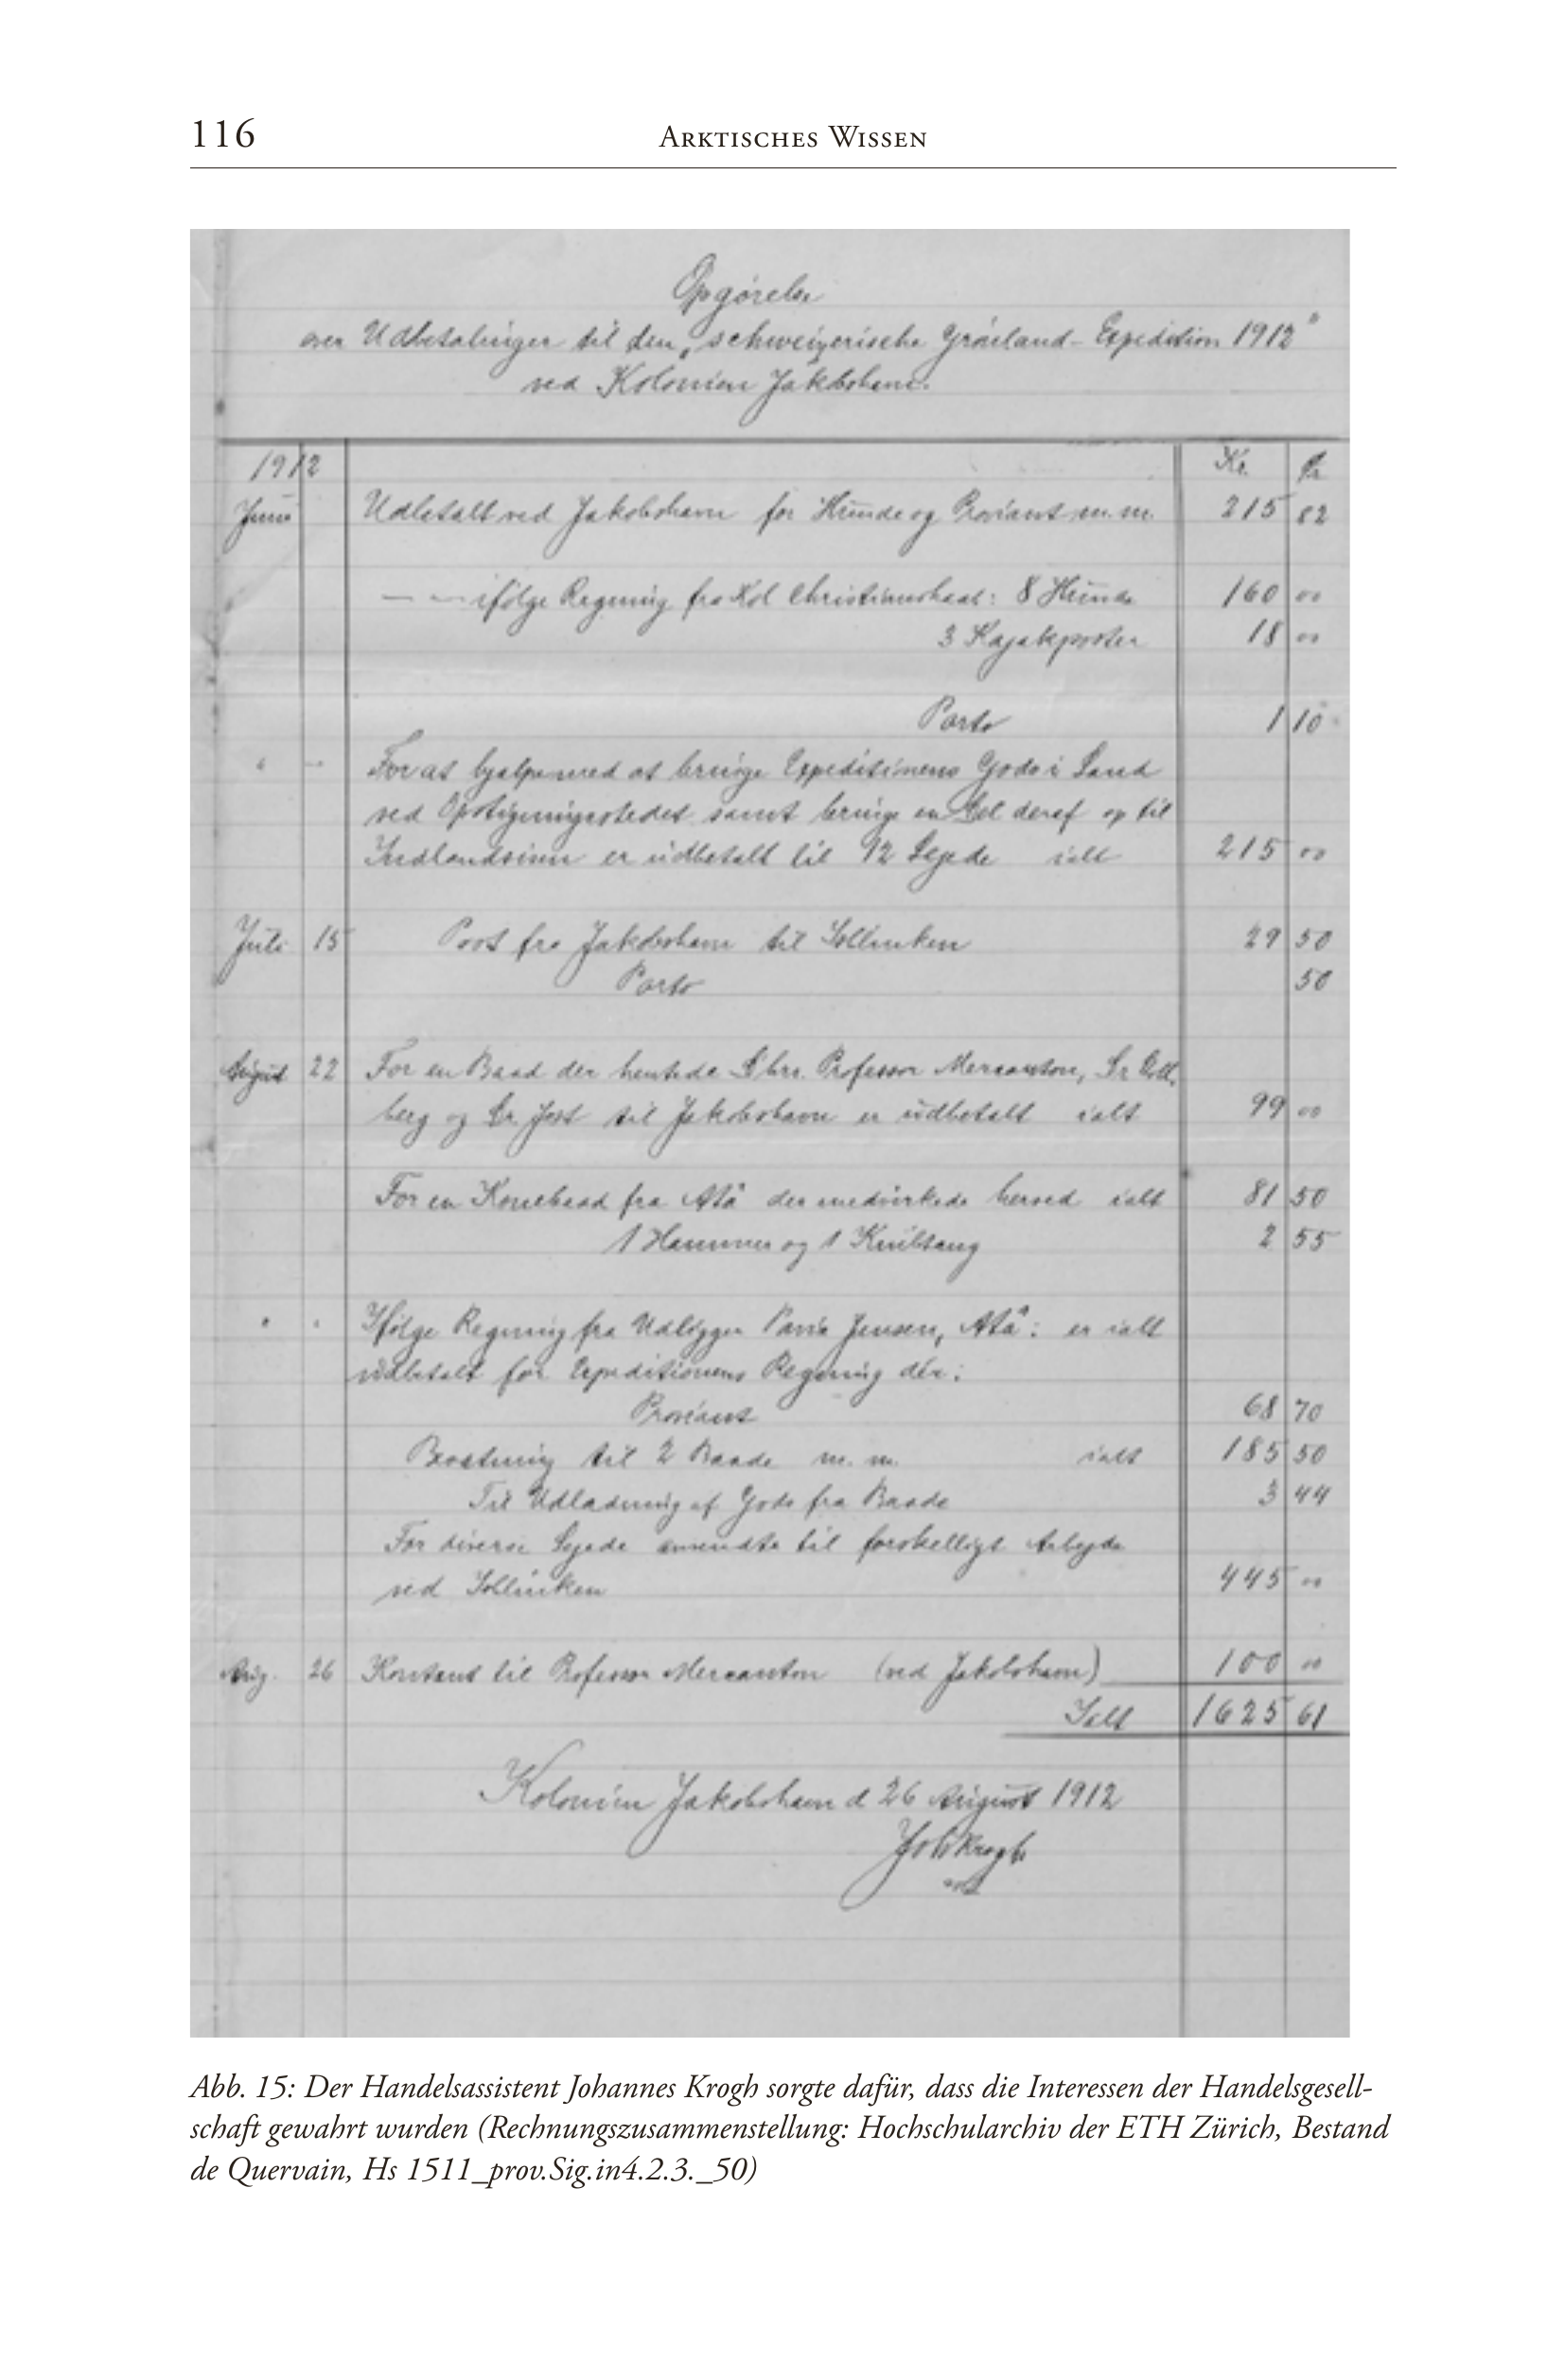 116
Arktisches Wissen
Opgörelse
over Udbetalinger til den „schweizerische Grönland-Expedition 1912"
ved Kolonien Jakobshavn.
1912 Kr. Ør
Juni Udbetalt ved Jakobshavn for Hunde og Proviant m. m. 215 82
— — ifölge Regning fra Kol Christianshaab: 8 Hunde 160 00
3 Kajakposter 18 00
Porto 1 10
" — For at hjælpe med at bringe Expeditionens Gods i Land
ved Opstigningsstedet samt bringe en Del deraf op til
Indlandsisen er udbetalt til 12 Lejede ialt 215 00
Juli 15 Post fra Jakobshavn til 29 50
Porto 50
August 22 For en Baad der hentede Professor Mercanton, Dr
berg og Dr. Jost til Jakobshavn er udbetalt ialt 99 00
For en Konebaad fra Atâ der medvirkede herved ialt 81 50
1 Hammer og 1 Knibtang 2 55
" " Ifölge Regning fra Udligger Pavia Jensen, Atâ: er ialt
udbetalt for Expeditionens Regning dér:
Proviant 68 70
til 2 Baade m. m. ialt 185 50
Til Udladning af Gods fra Baade 3 44
For diverse Lejede anvendte til forskelligt Arbejde
ved 445 00
Aug. 26 Kontant til Professor Mercanton (ved Jakobshavn) 100 00
Ialt 1625 61
Kolonien Jakobshavn d 26 August 1912
Joh Krogh
Abb. 15: Der Handelsassistent Johannes Krogh sorgte dafür, dass die Interessen der Handelsgesell-
schaft gewahrt wurden (Rechnungszusammenstellung: Hochschularchiv der ETH Zürich, Bestand
de Quervain, Hs 1511_prov.Sig.in4.2.3._50)